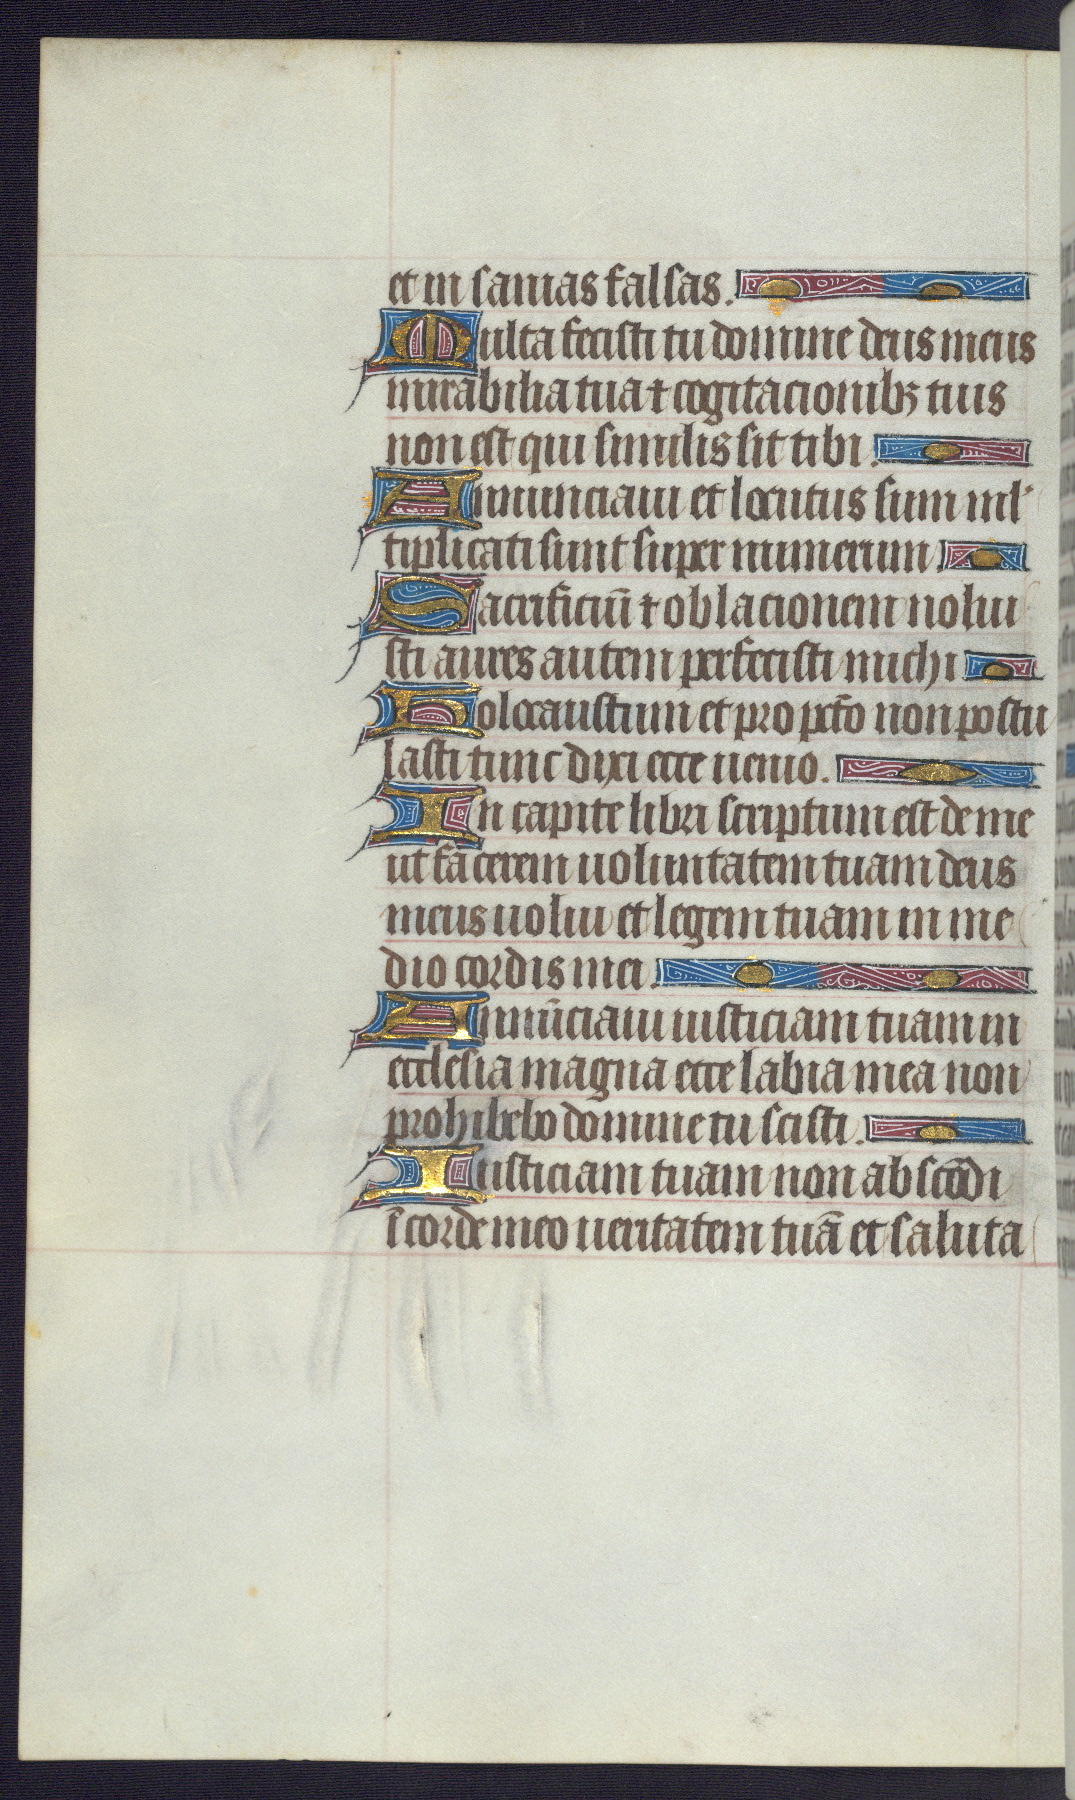 et in sanias falsas.
Multa fecisti tu domine deus meus
mirabilia tua ⁊ cogitacionibꝫ tuis
non est qui similis sit tibi.
Annunciaui et locutus sum ml᾽
tiplicati sunt super numerum.
Sacrificiū ⁊ oblacionem nolui
sti aures autem perfecisti michi
Holocaustum et pro pct̄o non postu
lasti tunc dixi ecce uenio.
In capite libri scriptum est de me
ut facerem uoluntatem tuam deus
meus uolui et legem tuam in me
dio cordis mei.
Annūciaui iusticiam tuam in
ecclesia magna ecce labia mea non
prohibebo domine tu scisti.
Iusticiam tuam non abscōdi
ī corde meo ueritatem tuā et saluta